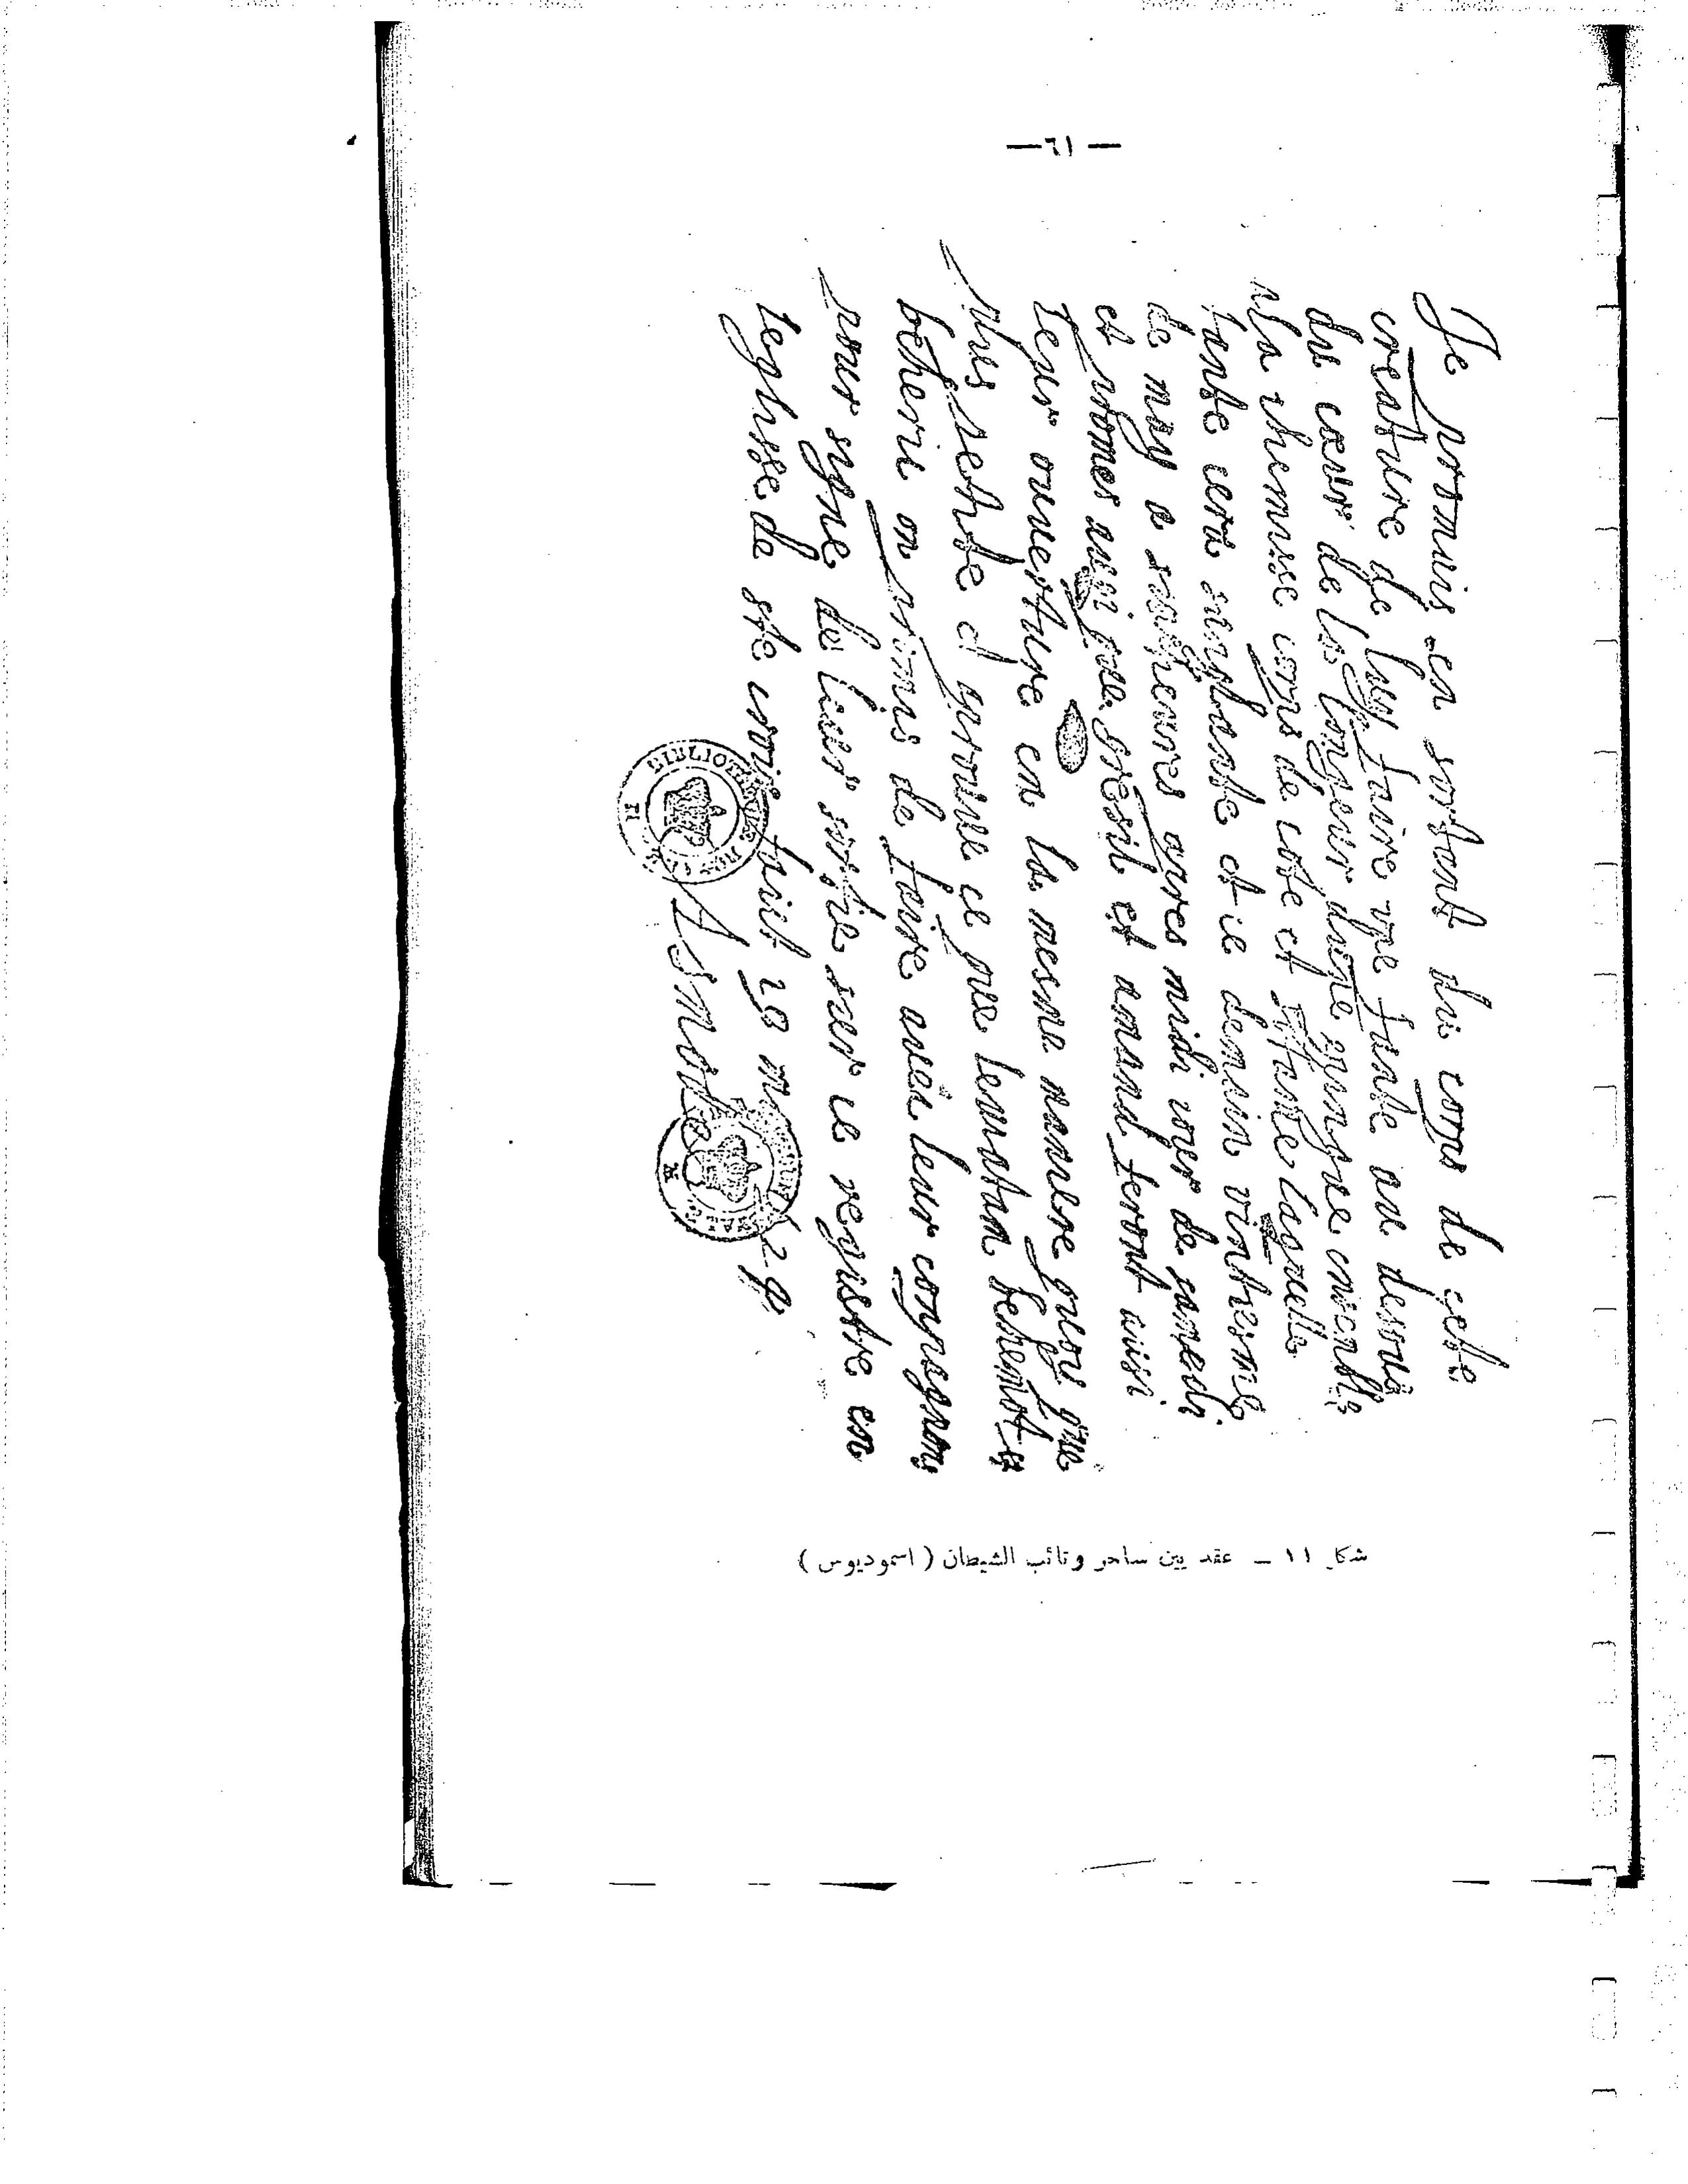 — ٦١ —
Je promais en sortant du corps de cette
creature de luy faire une fante au desoubs
du cœur de la longeur dune epingle ensemble
a la chemisse corps de cotte et pourpoint laquelle
fante cera senglante et ce demain vintiesme
de may a sainq heures apres midi jour de samedi
et promes aussi que gresil et amand feront aussi
leur ouverture en la mesme maniere quoy que
plus petite et approuve ce que leviatam behemot
beherie on promis de faire avec leur compagnon
pour signe de leur sortie sur ce registre en
leglisse de ste croix faict 19 may 1629
Asmodee
شكل ١١ — عقد بين ساحر ونائب الشيطان ( اسموديوس )